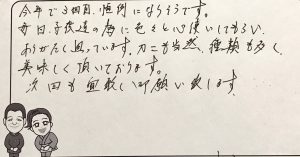 今年で3回目、恒例になりそうです。
毎日、子供達の為に色々と心使いしてもらい、
ありがたく思っています。カニも当然、種類も多く、
美味しく頂いております。
次回も宜敷く御願い致します